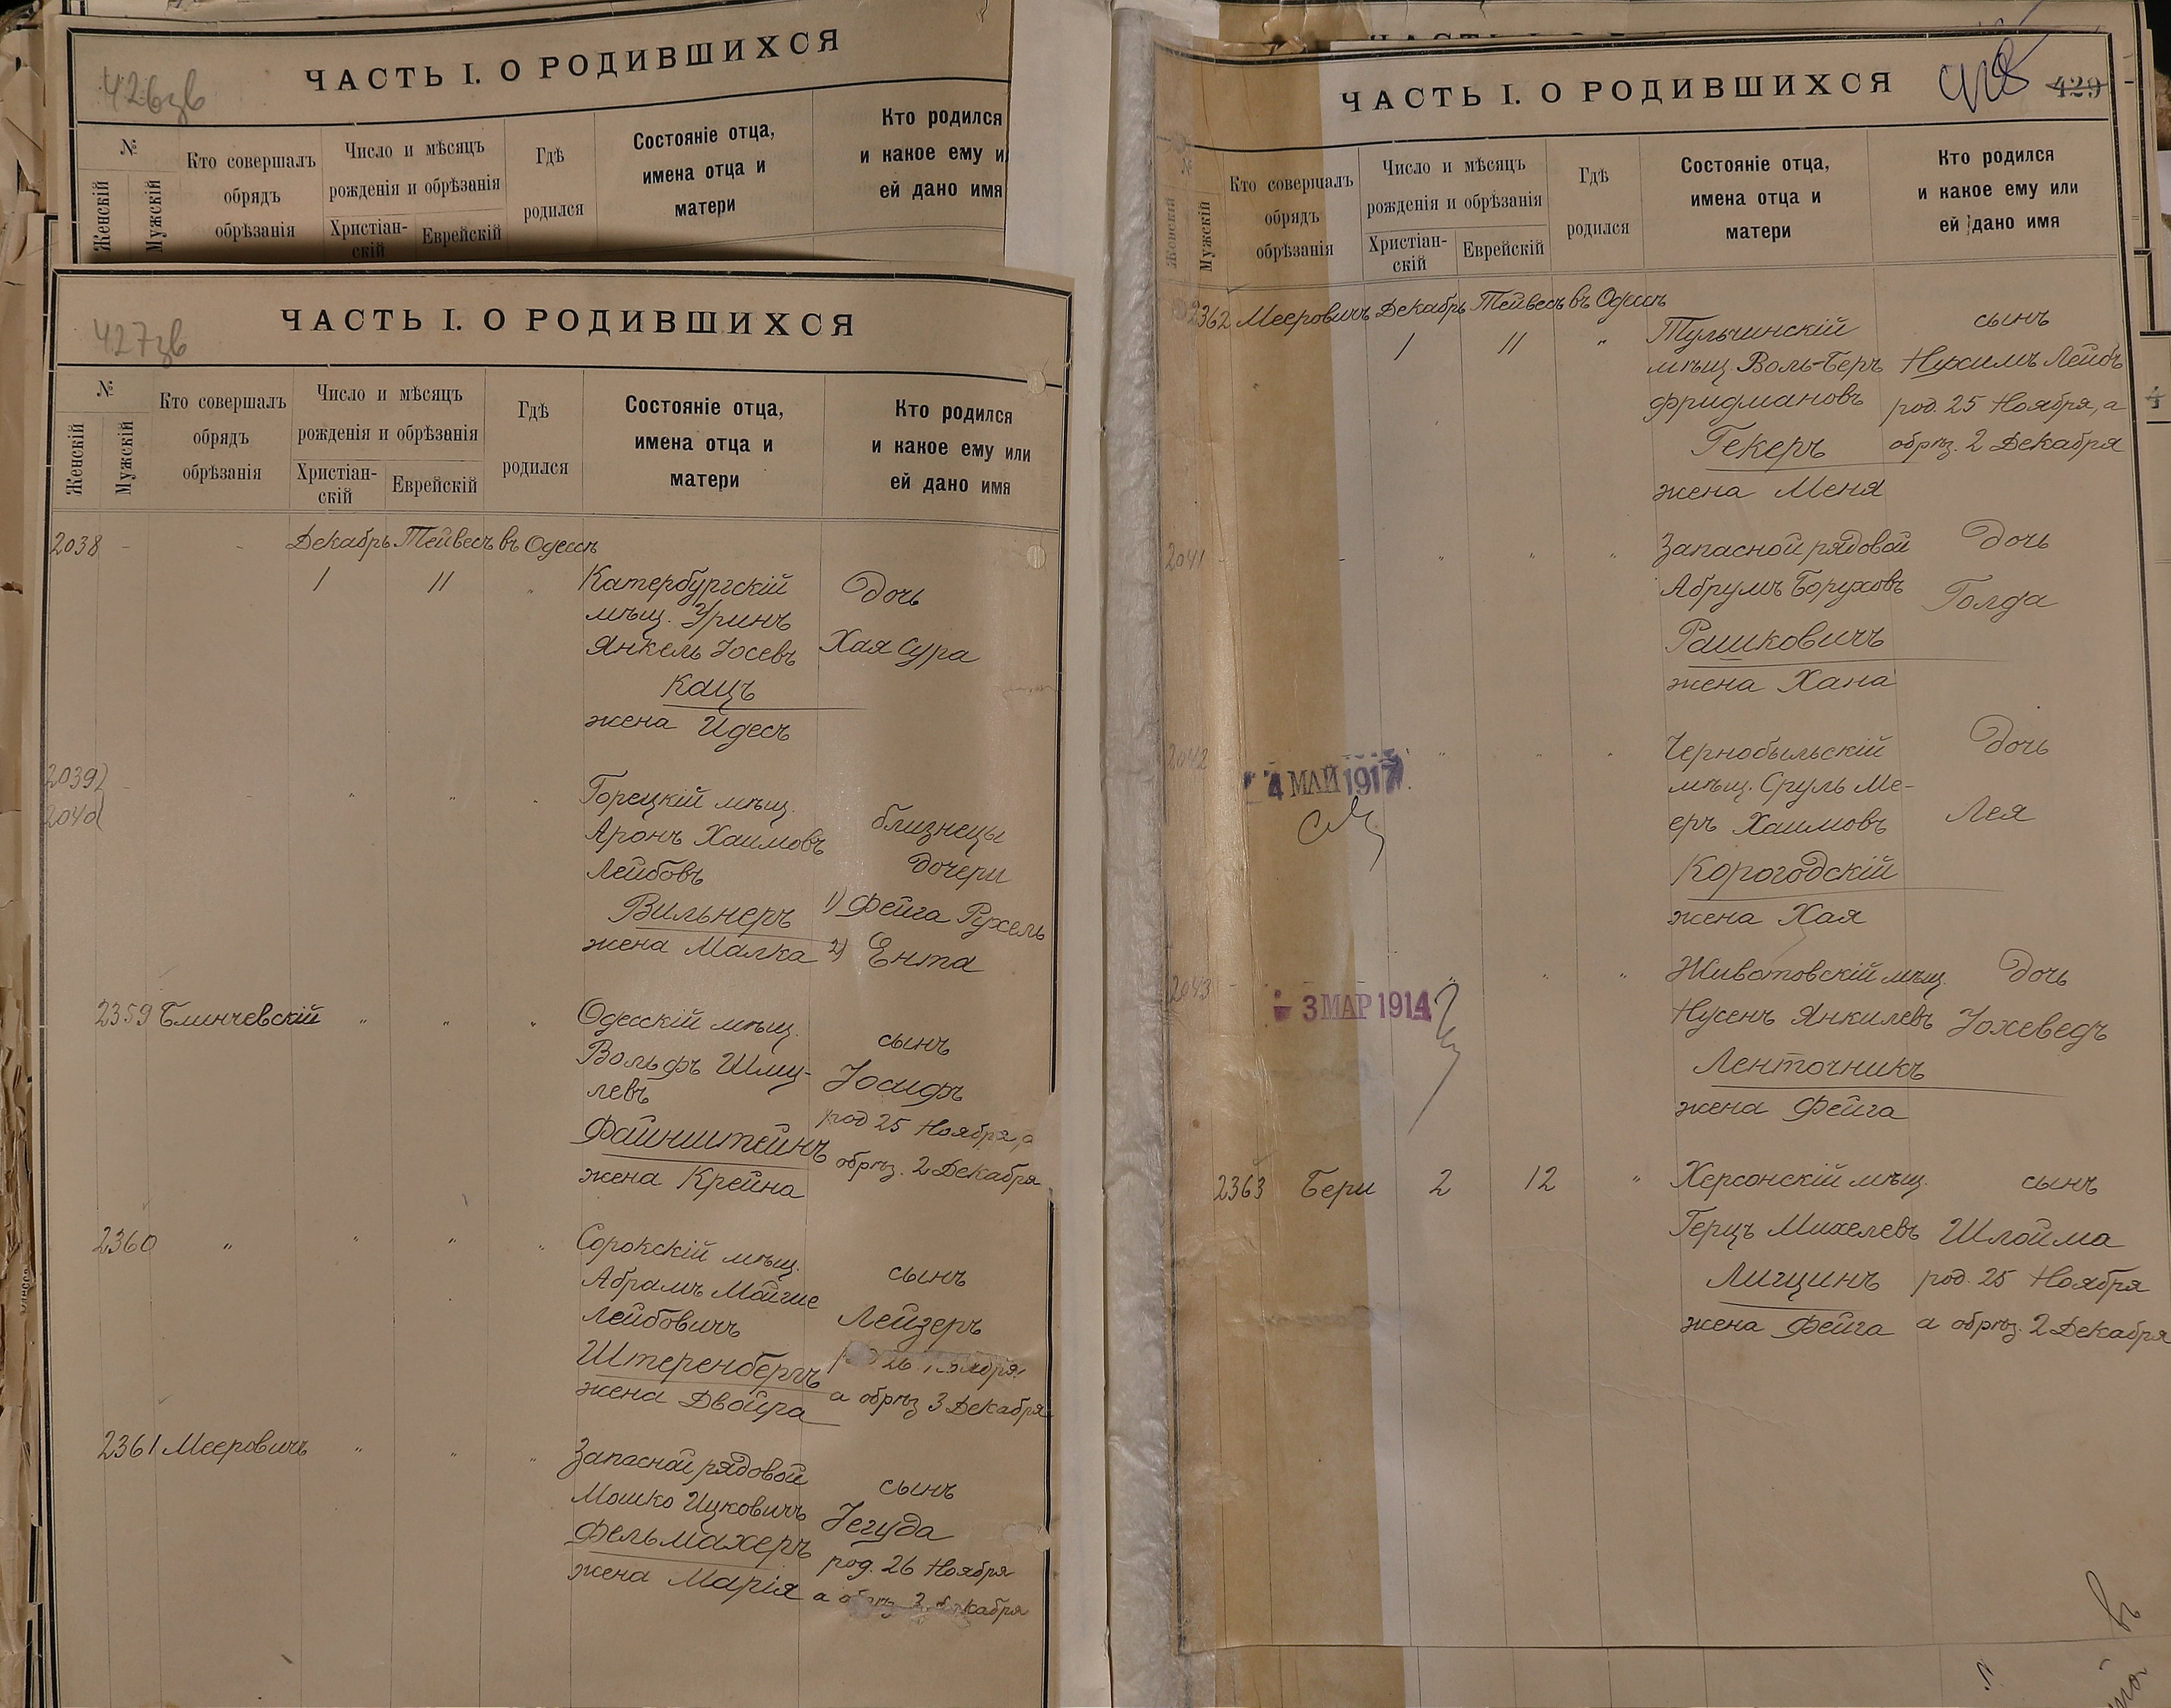 426 зв
ЧАСТЬ I. О РОДИВШИХСЯ
№
Женскій
Мужскій
Кто совершалъ
обрядъ
обрѣзанія
Число и мѣсяцъ
рожденія и обрѣзанія
Христіан-
скій
Еврейскій
Гдѣ
родился
Состояніе отца,
имена отца и
матери
Кто родился
и какое ему и
ей дано имя
427 зв
ЧАСТЬ I. О РОДИВШИХСЯ
№
Женскій
Мужскій
Кто совершалъ
обрядъ
обрѣзанія
Число и мѣсяцъ
рожденія и обрѣзанія
Христіан-
скій
Еврейскій
Гдѣ
родился
Состояніе отца,
имена отца и
матери
Кто родился
и какое ему или
ей дано имя
2038 - - Декабрь Тейвесъ въ Одессѣ
1 11 " Катербургскій Дочь
мѣщ. Уринъ
Янкель Іосевъ Хая Сура
Кацъ
жена Идесъ
2039)
2040) - " " " Горецкій мѣщ.
Аронъ Хаимовъ близнецы
Лейбовъ дочери
Вильнеръ 1) Фейга Рухель
жена Малка 2) Ента
2359 Блинчевскій " " " Одесскій мѣщ. сынъ
Вольфъ Шму- Іосифъ
левъ
род 25 Ноября, а
Файнштейнъ обрѣз. 2 Декабря
жена Крейна
2360 " " " " Сорокскій мѣщ. сынъ
Абрамъ Мойше
Лейбовичъ Лейзеръ
Штеренбергъ 26 Ноября
жена Двойра а обрѣз 3 Декабря
2361 Мееровичъ " " " Запасной рядовой сынъ
Мошко Ицковичъ Іегуда
Фельмахеръ род. 26 Ноября
жена Марія а обрѣз. Декабря
ЧАСТЬ I. О РОДИВШИХСЯ
428
429
№
Женскій
Мужскій
Кто совершалъ
обрядъ
обрѣзанія
Число и мѣсяцъ
рожденія и обрѣзанія
Христіан-
скій
Еврейскій
Гдѣ
родился
Состояніе отца,
имена отца и
матери
Кто родился
и какое ему или
ей дано имя
2362 Мееровичъ Декабрь Тейвесъ въ Одессѣ
1 11 " Тульчинскій сынъ
мѣщ. Воль-Беръ Нухимъ Лейбъ
Фридмановъ род. 25 Ноября, а
Гекеръ обрѣз. 2 Декабря
жена Меня
2041 - - " " " Запасной рядовой Дочь
Абрумъ Боруховъ Голда
Рашковичъ
жена Хана
2042 - " " " Чернобыльскій Дочь
4 МАЙ 1917
мѣщ. Сруль Ме-
еръ Хаимовъ Лея
Корогодскій
жена Хая
2043 - " " " Животовскій мѣщ. Дочь
3 МАР 1914
Нусенъ Янкилевъ Іохеведъ
Ленточникъ
жена Фейга
2363 Бери 2 12 " Херсонскій мѣщ. сынъ
Герцъ Михелевъ Шлойма
Лищинъ род. 25 Ноября
жена Фейга а обрѣз. 2 Декабря